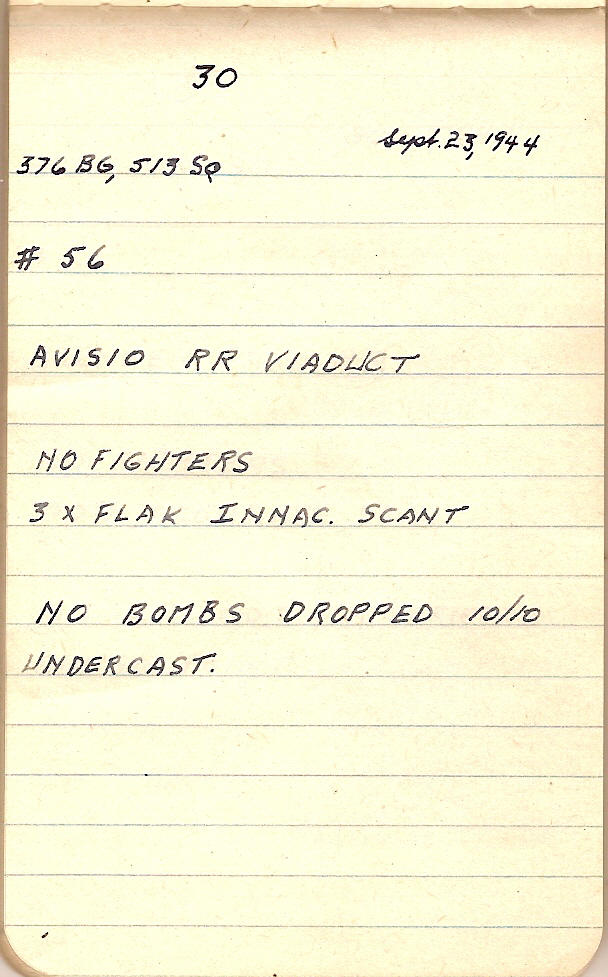 30
Sept. 23, 1944
376 BG, 513 SQ
# 56
AVISIO RR VIADUCT
NO FIGHTERS
3 X FLAK INNAC. SCANT
NO BOMBS DROPPED 10/10
UNDERCAST.